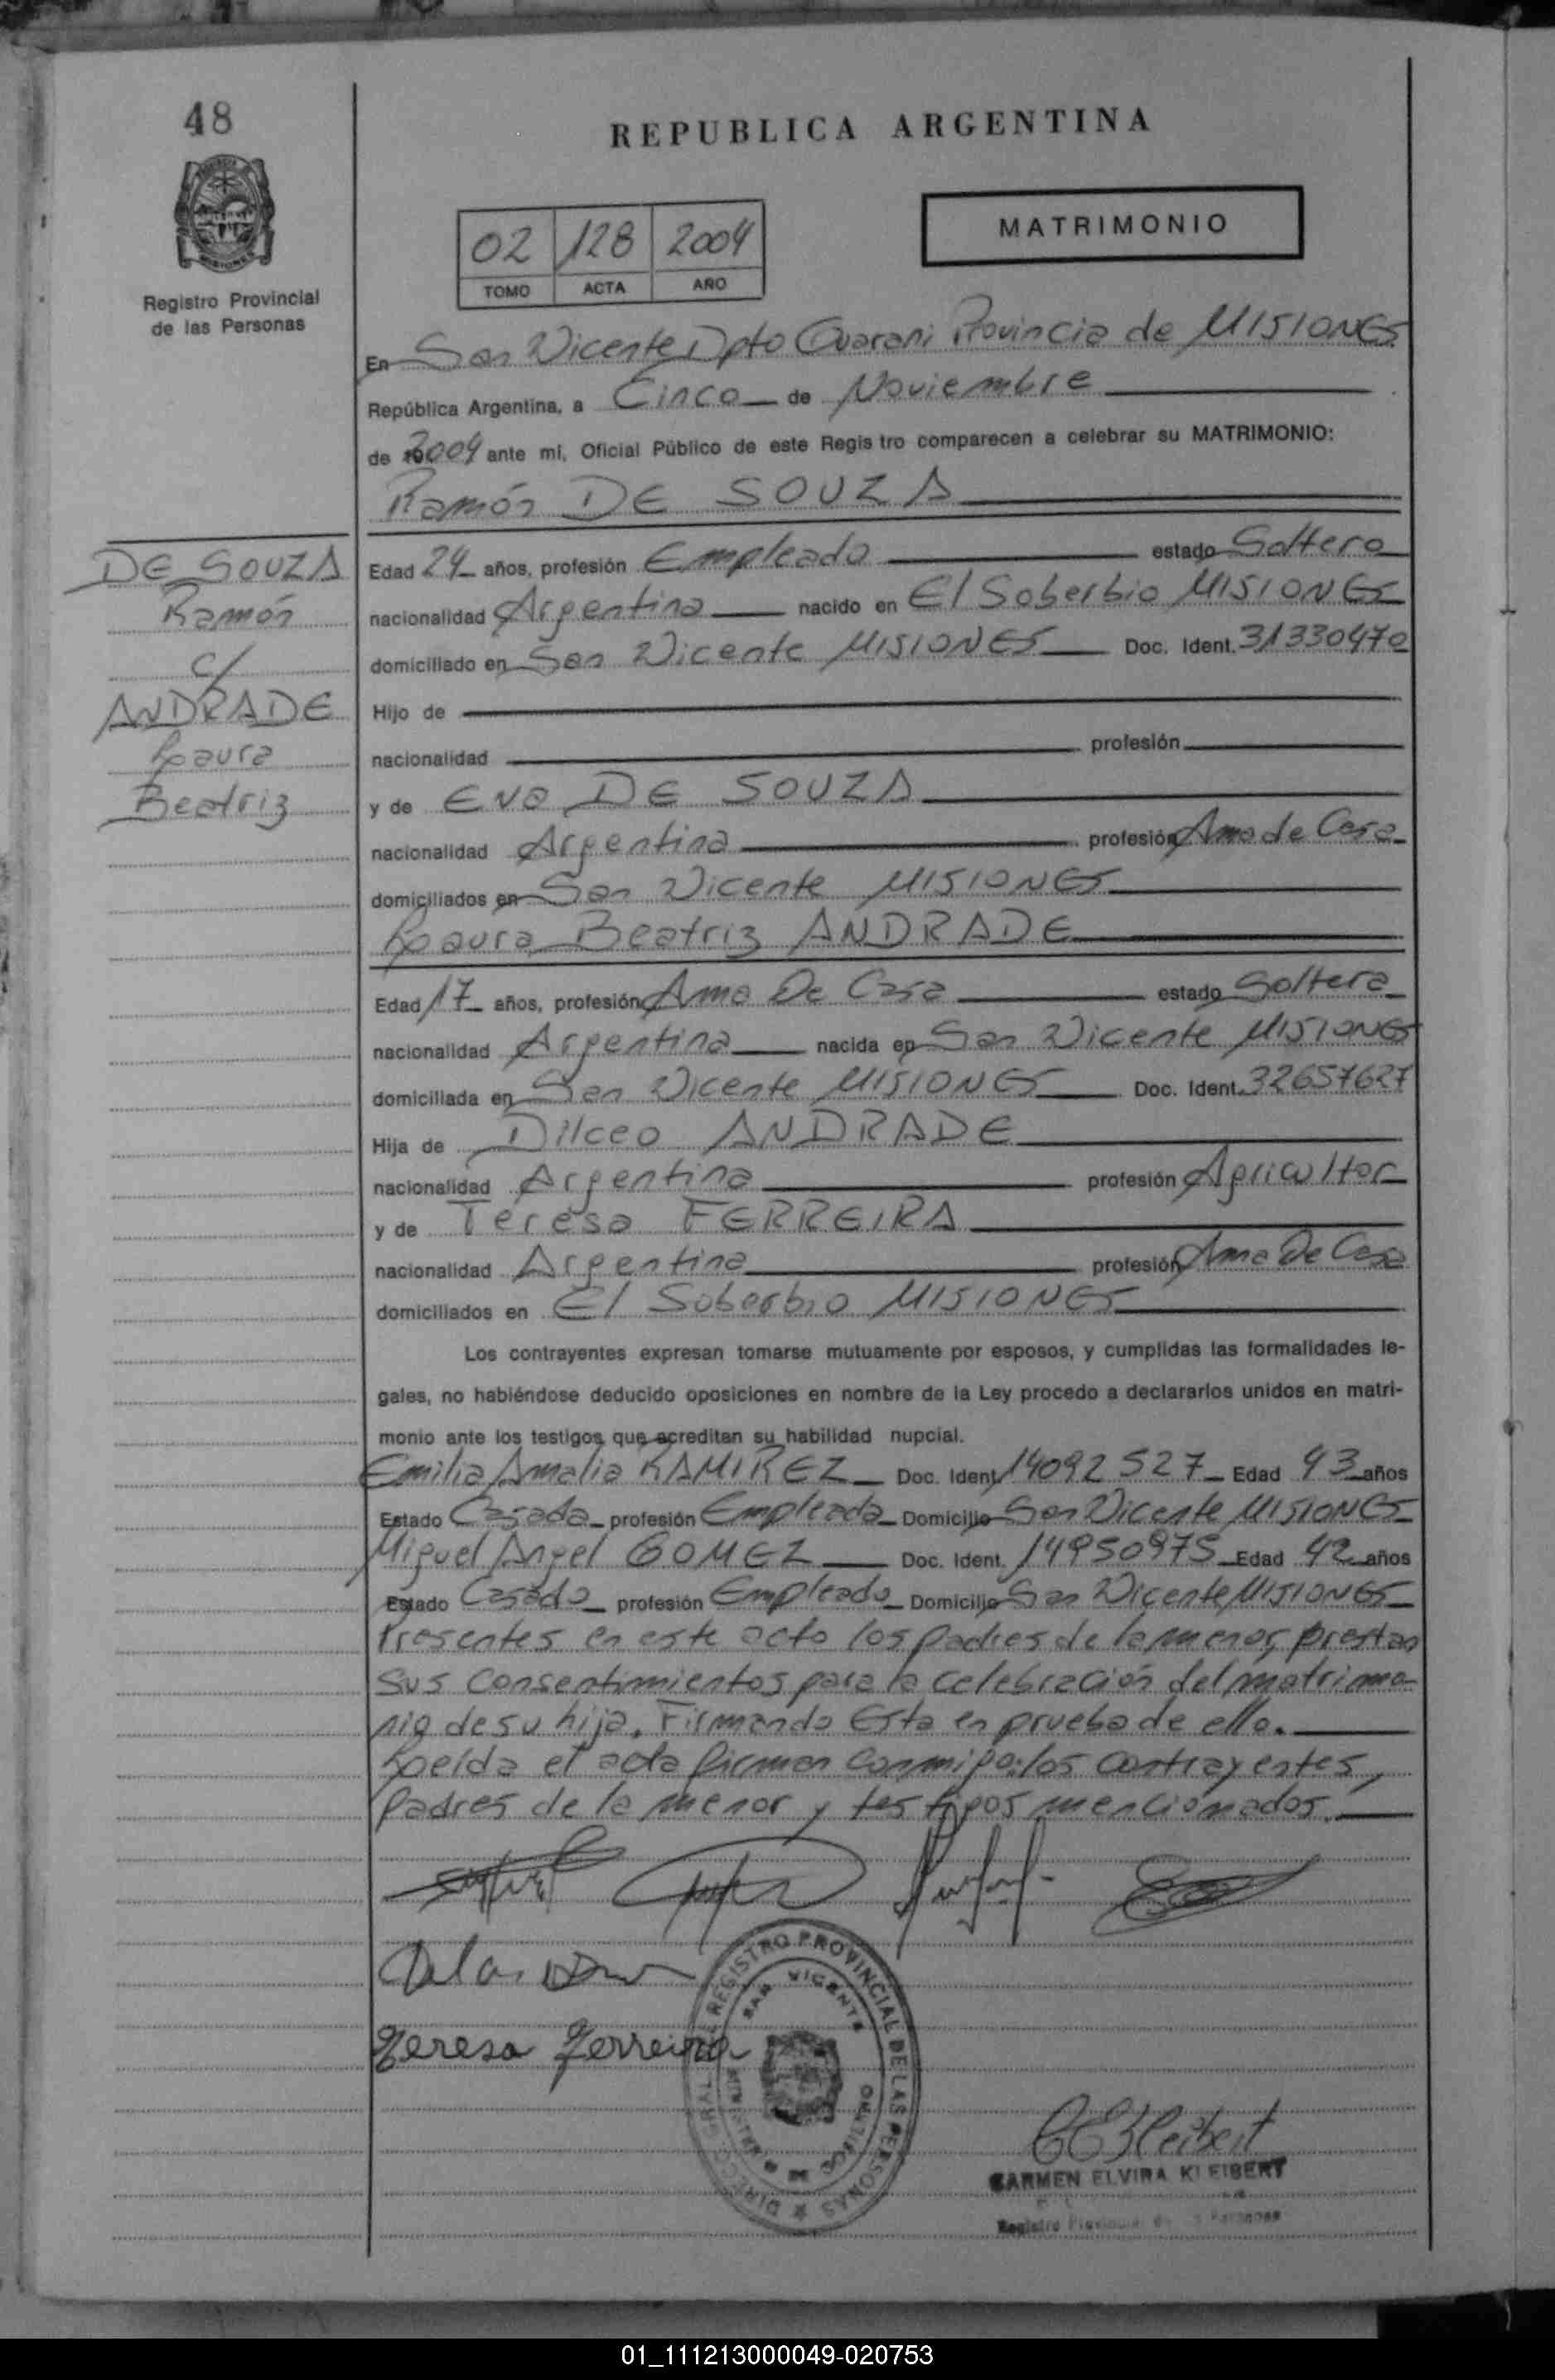 48
REPUBLICA ARGENTINA
MATRIMONIO
02 128 2004
TOMO ACTA AÑO
Registro Provincial
de las Personas
En San Vicente Dpto Guarani Provincia de MISIONES
República Argentina, a Cinco de Noviembre
de 2004 ante mí, Oficial Público de este Regis tro comparecen a celebrar su MATRIMONIO:
Ramón DE SOUZA
DE SOUZA
Ramón
c/
ANDRADE
Laura
Beatriz
Edad 24 años, profesión Empleado estado Soltero
nacionalidad Argentina nacido en El Soberbio MISIONES
domiciliado en San Vicente MISIONES Doc. Ident. 31330470
Hijo de
nacionalidad profesión
y de Eva DE SOUZA
nacionalidad Argentina profesión Ama de Casa
domiciliados en San Vicente MISIONES
Laura Beatriz ANDRADE
Edad 17 años, profesión Ama De Casa estado Soltera
nacionalidad Argentina nacida en San Vicente MISIONES
domiciliada en San Vicente MISIONES Doc. Ident. 32657627
Hija de Dilceo ANDRADE
nacionalidad Argentina profesión Agricultor
y de Teresa FERREIRA
nacionalidad Argentina profesión Ama De Casa
domiciliados en El Soberbio MISIONES
Los contrayentes expresan tomarse mutuamente por esposos, y cumplidas las formalidades le-
gales, no habiéndose deducido oposiciones en nombre de la Ley procedo a declararlos unidos en matri-
monio ante los testigos que acreditan su habilidad nupcial.
Emilia Amalia RAMIREZ Doc. Ident. 14092527 Edad 43 años
Estado Casada profesión Empleada Domicilio San Vicente MISIONES
Miguel Angel GOMEZ Doc. Ident. 14950975 Edad 42 años
Estado Casado profesión Empleado Domicilio San Vicente MISIONES
Presentes en este acto los padres de la menor, prestan
sus Consentimientos para la celebración del matrimo-
nio de su hija. Firmando Esta en prueba de ello.
Leída el acta firman conmigo: los contrayentes,
padres de la menor y testigos mencionados.
Teresa Ferreira
REGISTRO PROVINCIAL DE LAS PERSONAS
SAN VICENTE
CARMEN ELVIRA KLEIBERT
01_111213000049-020753